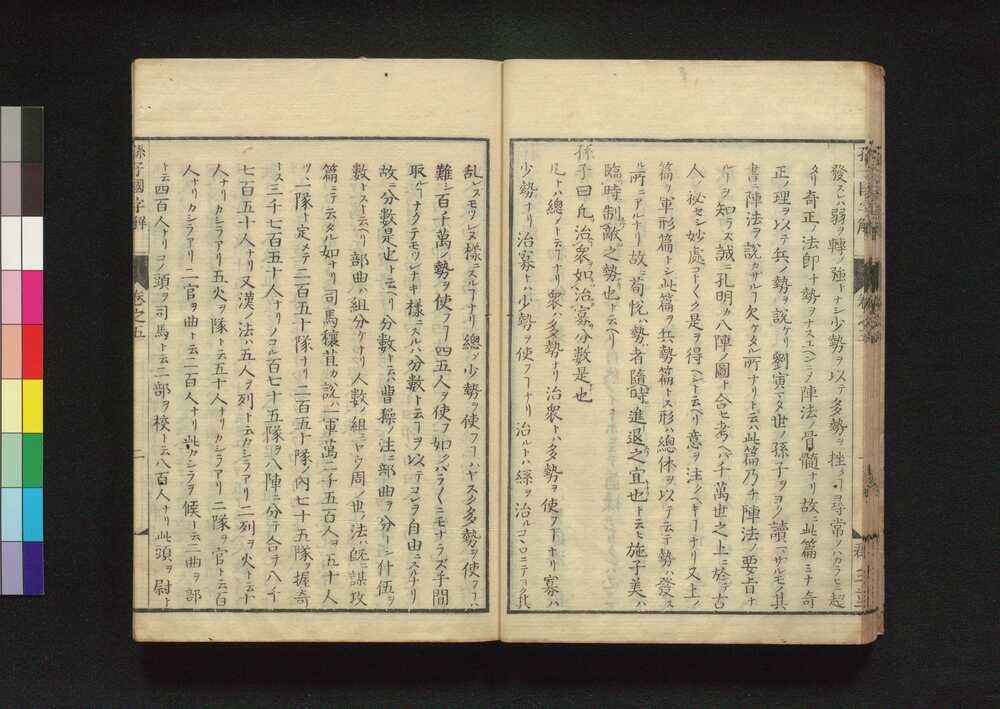 發スレハ弱ヲ轉ノ強トナシ少勢ヲ以テ多勢ヲ挫ク丁尋常ノハカラヒニ超
タリ奇正ノ法即ナ勢ヲナスユヘンニノ陣法ノ骨髓ナリ故ニ此篇ミナ奇
正ノ理ヲ以テ兵ノ勢ヲ説ケリ劉寅マタ世ノ孫子ヲヨク讀マサルモノ其
書ニ陣法ヲ説カサル丁ヲ欠ケタル所ナリト云ハ此篇乃チ陣法ノ要旨ナ
ルヲ知ラス誠ニ孔明カ八陣ノ圖ト合セ考ヘハ千萬世之上ニ於テ古
人ノ祕セシ妙處コト〱ク是ヲ得ヘント云ヘリ意ヲ注クヘキ丁ナリ又上ノ
篇ヲ軍形篇トシ此篇ヲ兵勢篇トス形ハ總体ヲ以テ云テ勢ハ發ス
ル所ニアルナリ故ニ荀悦ハ勢者隨時進退之宜也ト云ヒ施子美ハ
臨時制敵之勢也ト云ヘリ
孫子曰凡治衆如治寡分數是也
凡トハ總ノト云丁ナリ衆ハ多勢ナリ治衆トハ多勢ヲ使フ丁ナリ寡ハ
少勢ナリ治寡トハ少勢ヲ使フ丁ナリ治ルトハ縲ヲ治ルコヽロニテヨク其
亂レスモツレヌ樣ニスル丁ナリ總ノ少勢ヲ使フ丁ハヤスク多勢ヲ使フ丁ハ
難シ百千萬ノ勢ヲ使フ丁四五人ヲ使フ如クハラ〱ニモナラズ手間
取ル丁ナクテモツレナキ樣ニスルハ分數ト云丁ヲ以テコレヲ自由ニスルナリ
故ニ分數是也ト云ヘリ分數ト云ハ曹操ノ注ニ部曲ヲ分トシ什伍ヲ
數トスト云ヘリ部曲ハ組分ケナリ人數ノ組ニヤウ周ノ世ノ法ハ既ニ謀攻
篇ニテ云タル如ナリ司馬穰苴カ説ハ一軍萬二千五百人ヲ五十人
ツヽ一隊ト定メテ二百五十隊ナリ二百五十隊ノ內七十五隊ヲ握奇
トス三千七百五十人ナリノコル百七十五隊ヲ八陣ニ分テ合ヲ八千
七百五十人ナリ又漢ノ法ハ五人ヲ列ト云カシラアリ二列ヲ火ト云十
人ナリカシラアリ五火ヲ隊ト云五十人ナリカシラアリ二隊ヲ官ト云百
人ナリカシラアリ二官ヲ曲ト云二百人ナリ此カシラヲ候ト云二曲ヲ部
ト云四百人ナリコノ頭ヲ司馬ト云二部ヲ校ト云八百人ナリ此頭ヲ尉ト
孫子國字解
卷之五
二